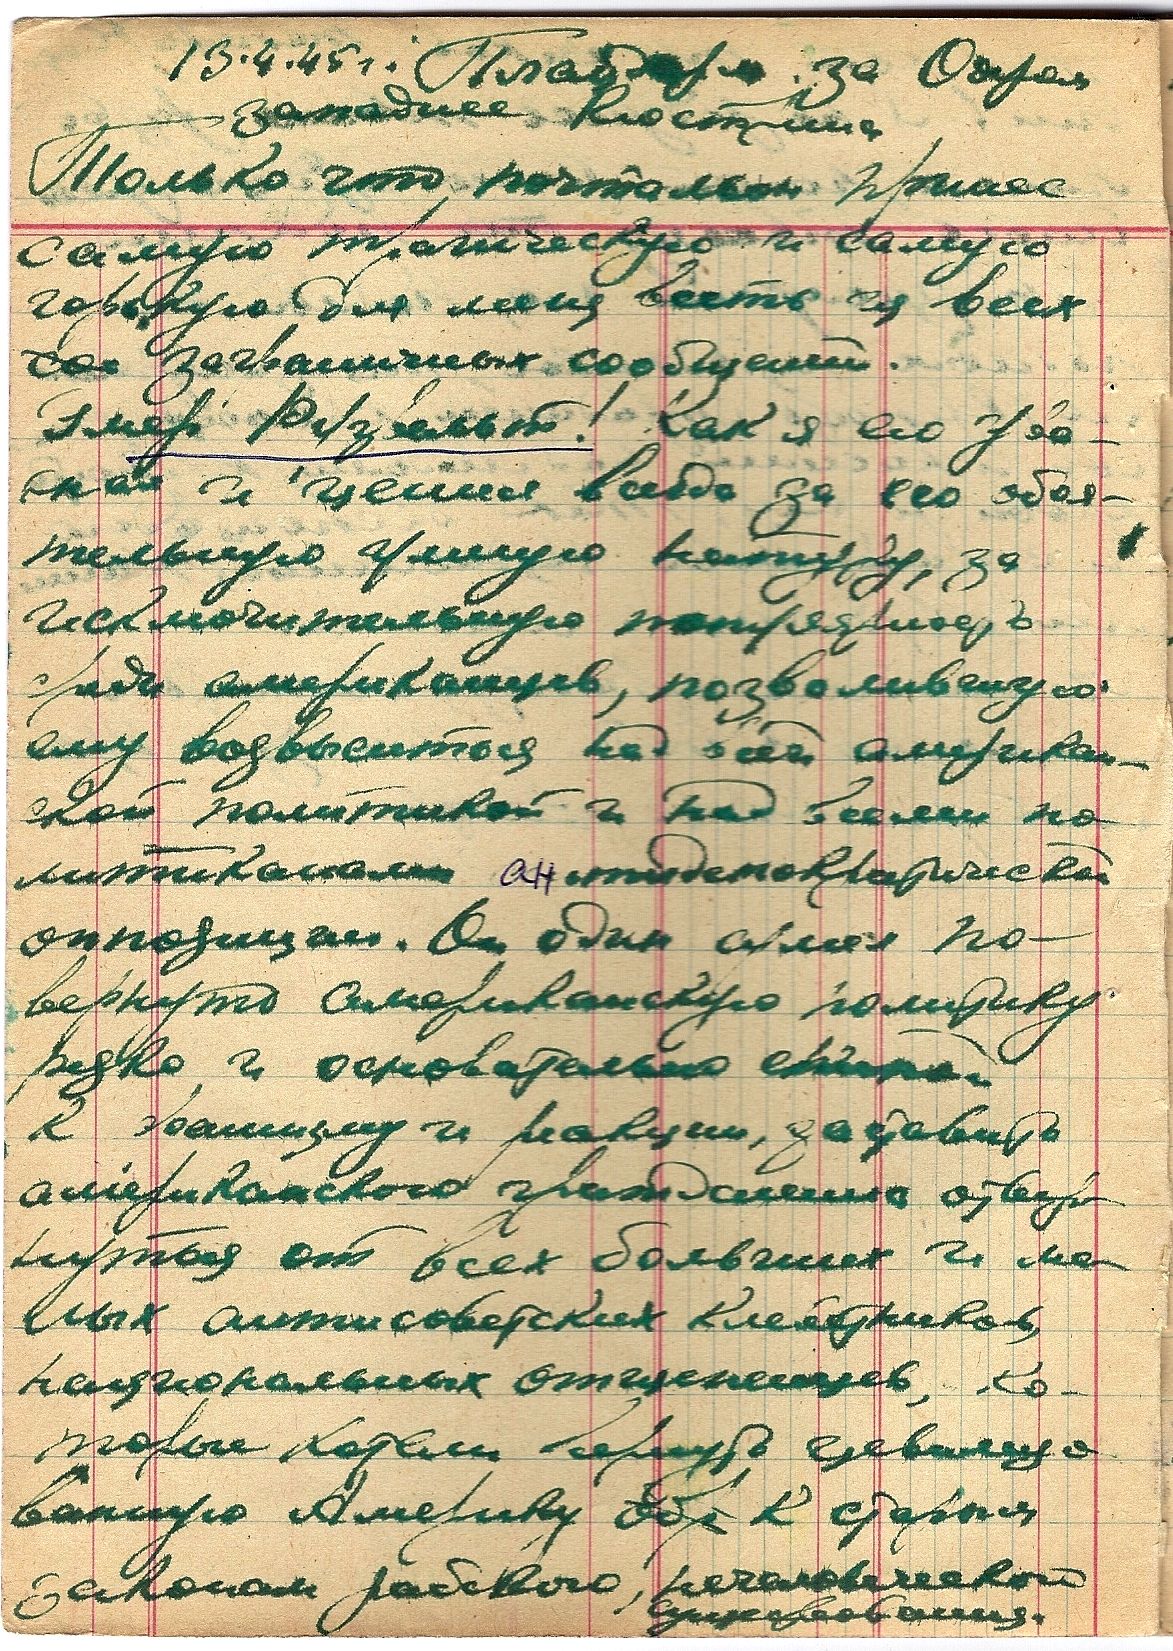 13.4.45 г. Плацдарм за Одрой
западнее Кюстрина
Только что почтальон принес
самую трагическую и самую
горькую для меня весть из всех
заграничных сообщений.
Умер Рузвельт! Как я его ува-
жал и ценил всегда за его обоя-
тельную умную натуру, за
исключительную популярность
среди американцев, позволившую
ему возвыситься над всей американ-
ской политикой и над всеми по-
литиканами антидемократической
оппозиции. Он один сумел по-
вернуть американскую политику
резко и основательно спиной
к фашизму и реакции, заставить
американского гражданина отвер-
нуться от всех больших и ма-
лых антисоветских клеветников,
национальных отщепенцев, ко-
торые хотели вернуть цивилизо
ванную Америку к старым
законам рабского, нечеловеческого
существования.